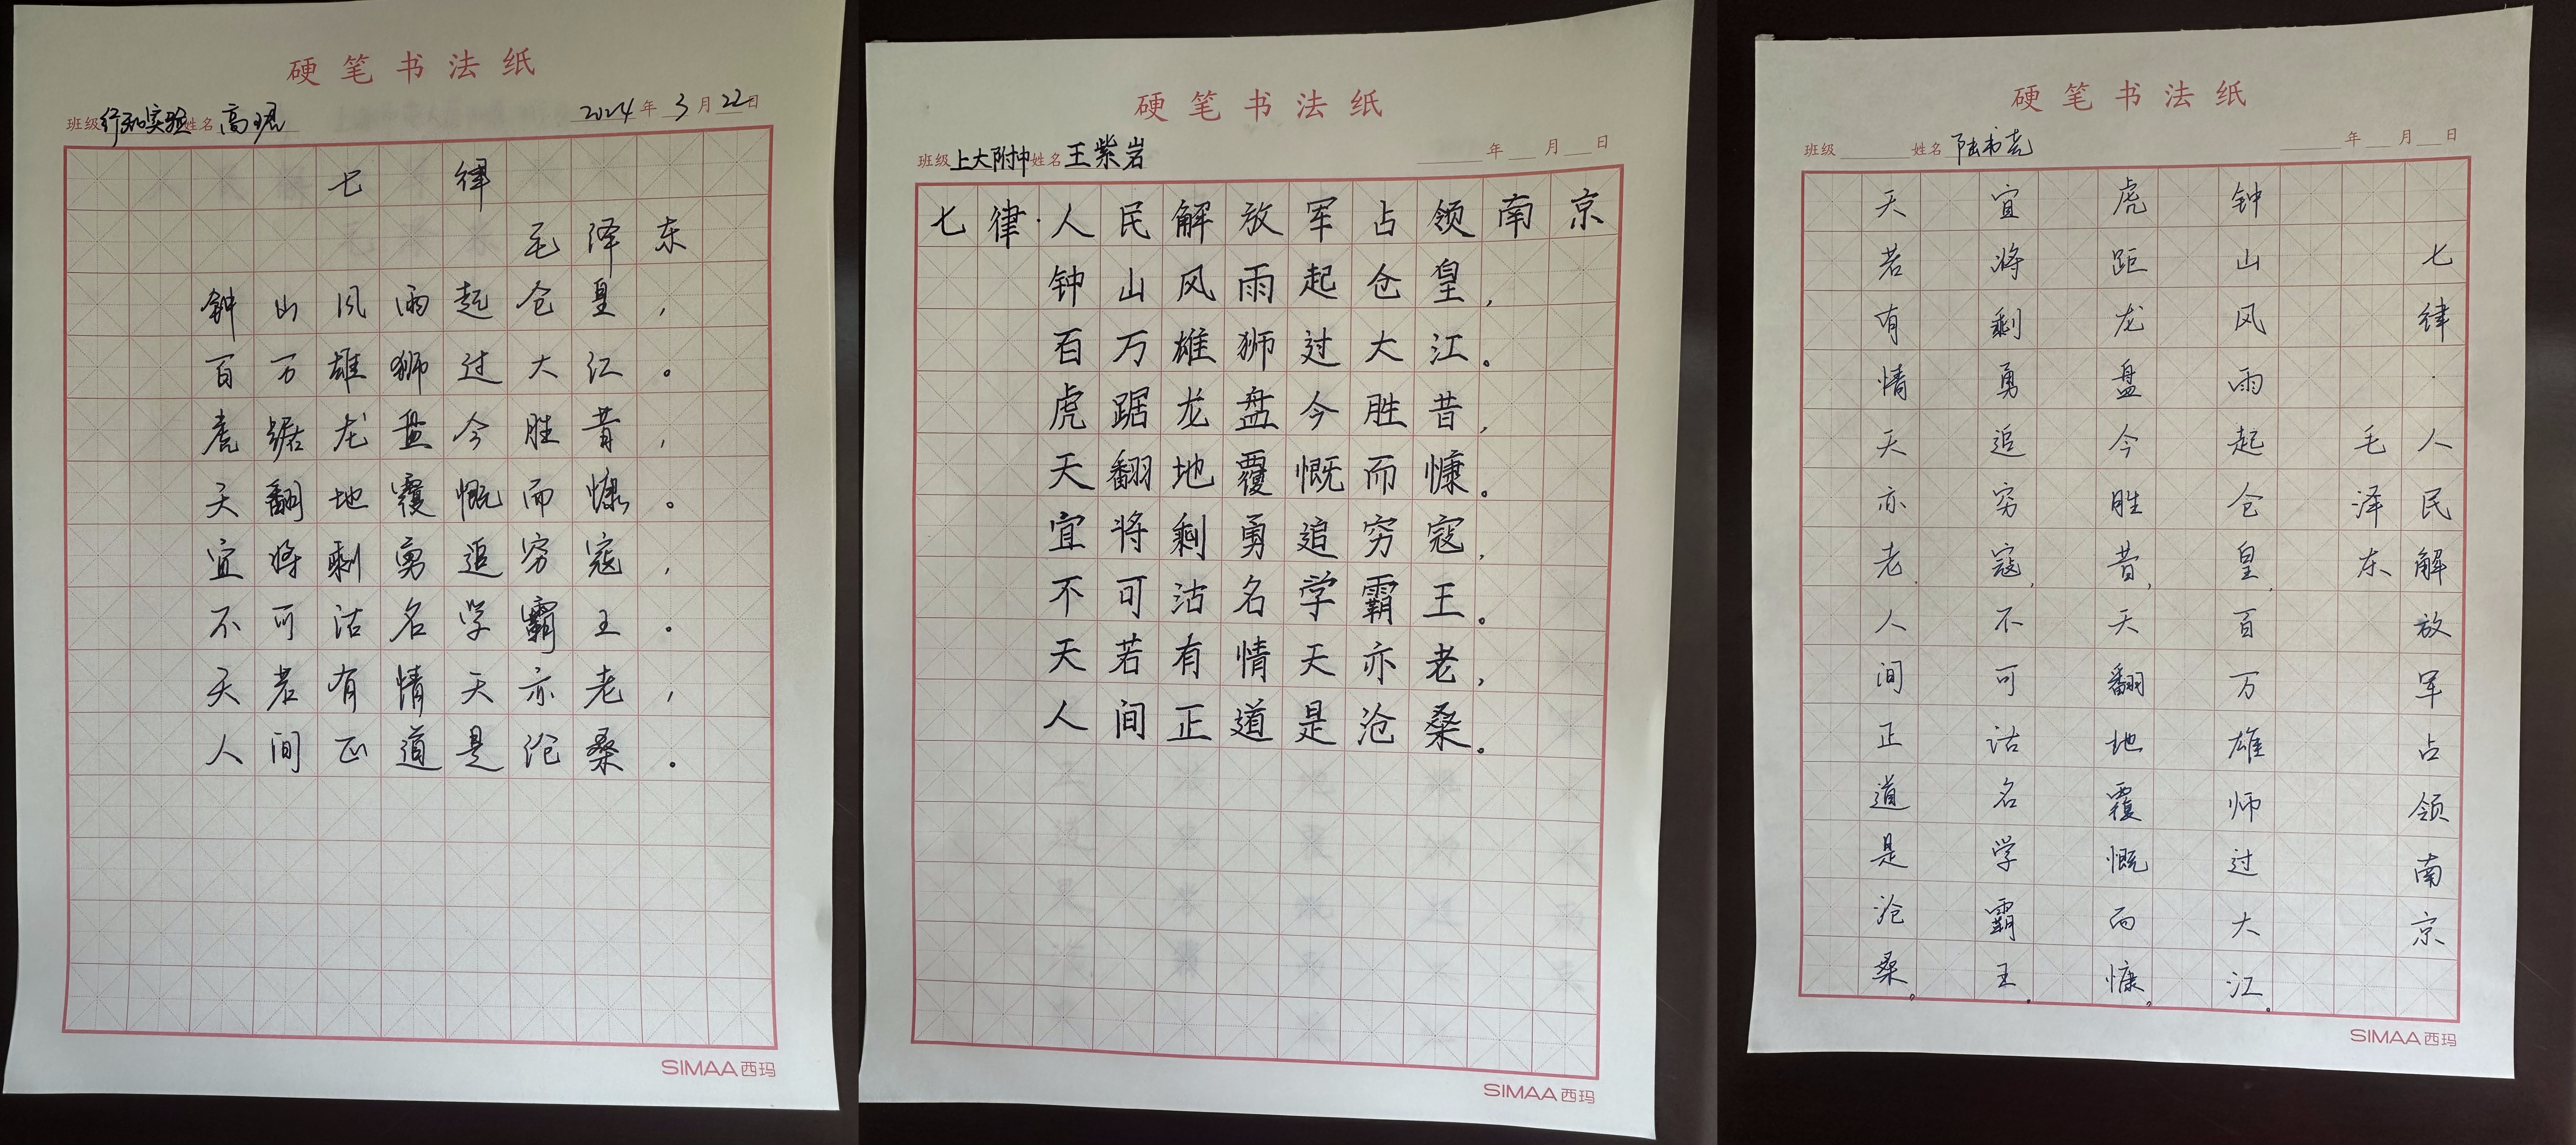 硬笔书法纸
班级 行知实验 姓名 高珺 2024年3月22日
七律
毛泽东
钟山风雨起仓皇，
百万雄狮过大江。
虎踞龙盘今胜昔，
天翻地覆慨而慷。
宜将剩勇追穷寇，
不可沽名学霸王。
天若有情天亦老，
人间正道是沧桑。
SIMAA西玛
硬笔书法纸
班级 上大附中 姓名 王紫岩 年 月 日
七律·人民解放军占领南京
钟山风雨起仓皇，
百万雄狮过大江。
虎踞龙盘今胜昔，
天翻地覆慨而慷。
宜将剩勇追穷寇，
不可沽名学霸王。
天若有情天亦老，
人间正道是沧桑。
SIMAA西玛
硬笔书法纸
班级 姓名 陆书尧 年 月 日
七律·人民解放军占领南京
毛泽东
钟山风雨起仓皇，百万雄师过大江。
虎距龙盘今胜昔，天翻地覆慨而慷。
宜将剩勇追穷寇，不可沽名学霸王。
天若有情天亦老，人间正道是沧桑。
SIMAA西玛